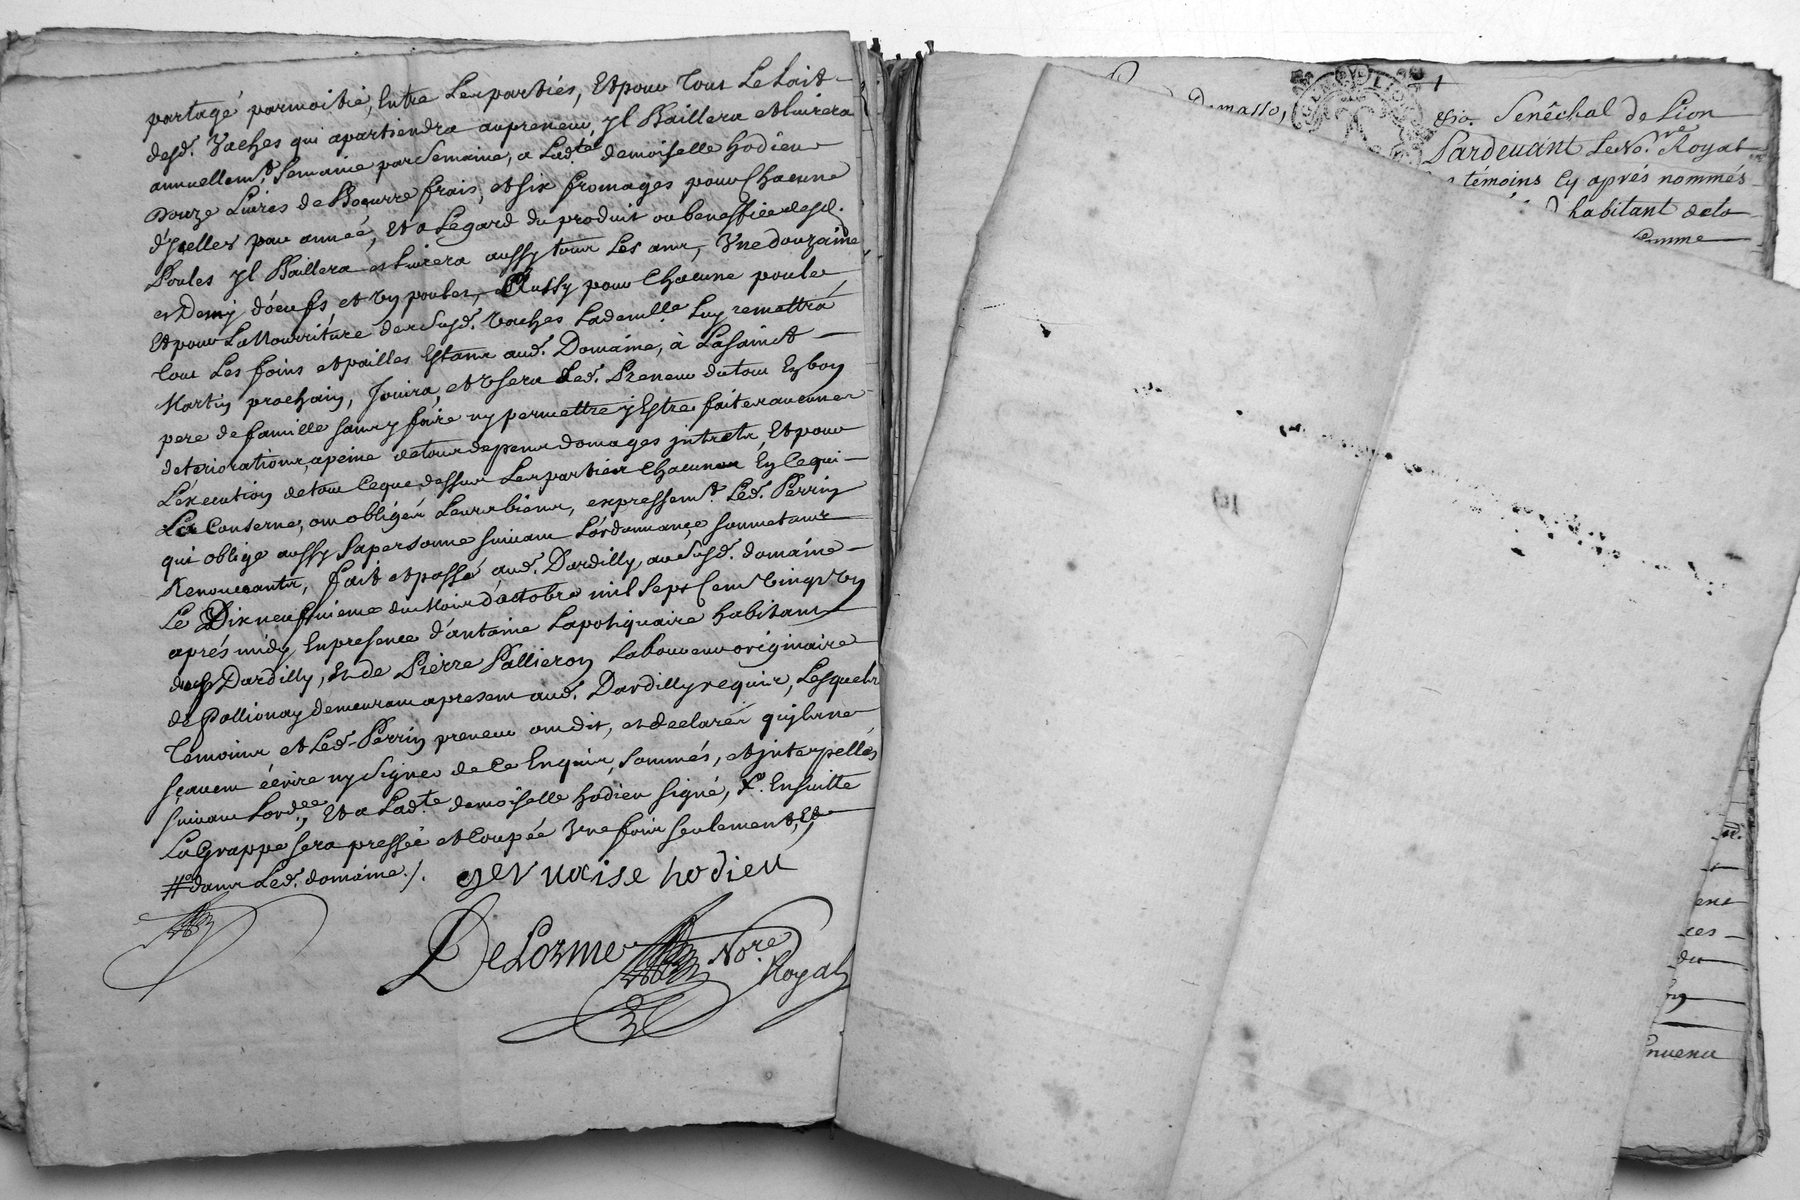 partagé par moitié, Entre Les parties, Et pour Tout Le Lait
desd. Vaches qui apartiendra au preneur, yl Baillera et Livrera
annuellemt. Semaine par Semaine, a Ladte. demoiselle hodieu
Douze Livres de Beourre frais, et six fromages pour Chacune
d'ycelles par année, Et a Legard du produit ou beneffice desd.
Poules yl Baillera et Livrera aussy tous Les ans, Une douzaine
et Demy d'oeufs, et Un poulet, Aussy pour Chacune poule
Et pour La Nourriture des Susd. Vaches Lademlle. Luy remettra
Tous Les foins et pailles Estans aud. Domaine, à La Sainct
Martin prochain, Jouira, et Usera Led. Preneur du tout En bon
pere de famille sans y faire ny permettre y Estre faites aucunes
deteriorations, a peine de tous depens domages intrets, Et pour
L'execution de tout Ce que dessus Les parties Chacunes En Ce qui
Les Conserne, ont obligés Leurs biens, expressemt. Led. Perrin
qui oblige aussy sa personne suivant L'ordonnance soumetans
Renonceants, fait et passé aud. Dardilly au susd. domaine
Le Dix neufvieme du Mois d'octobre mil sept Cens Vingt Un
aprés midy, En presence d'antoine Lapotiquaire habitant
dud. Dardilly, Et de Pierre Pallieron Laboureur originaire
de Pollionay demeurant a present aud. Dardilly requis, Lesquels
Temoins et Led. Perrin preneur ont dit, et declarés qu'ils ne
sçavent écrire ny signer de Ce Enquis, sommés, et interpellés
suivant Lordce., Et a Ladte. demoiselle hodieu signé, Ensuitte
La Grappe sera pressée et Coupée Une fois seulement, Et
# dans Led. domaine./.
gervaise hodieu
DeLorme Nore.
Royal
Senêchal de Lion
Pardevant Le Nore. Royal
témoins Cy aprés nommés
habitant de